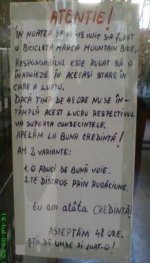 ATENȚIE!
ÎN NOAPTEA DE 14-15 IUNIE S-A FURAT
O BICICLETĂ MARCA MOUNTAIN BIKE,
RESPONSABILUL ESTE RUGAT SĂ O
ÎNAPOIEZE ÎN ACEEAȘI STARE ÎN
CARE A LUAT-O.
DACĂ TIMP DE 48 ORE NU SE ÎN-
TÂMPLĂ ACEST LUCRU RESPECTIVUL
VA SUPORTA CONSECINȚELE.
APELĂM LA BUNA CREDINȚĂ!
AM 2 VARIANTE:
1. O ADUCI DE BUNĂ VOIE.
2. TE DISTRUG PRIN RUGĂCIUNE.
Eu am atâta CREDINȚĂ!
AȘTEPTĂM 48 ORE,
ȘTII DE UNDE AI LUAT-O!